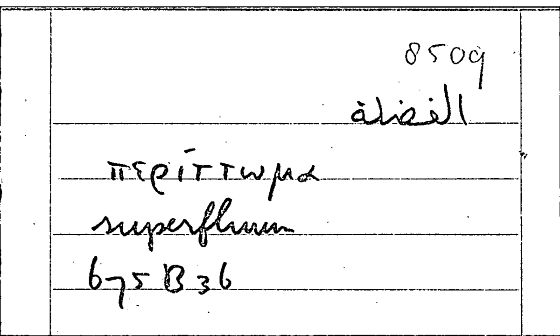 8509
الفضلة
περίττωμα
superfluum
675 B 36